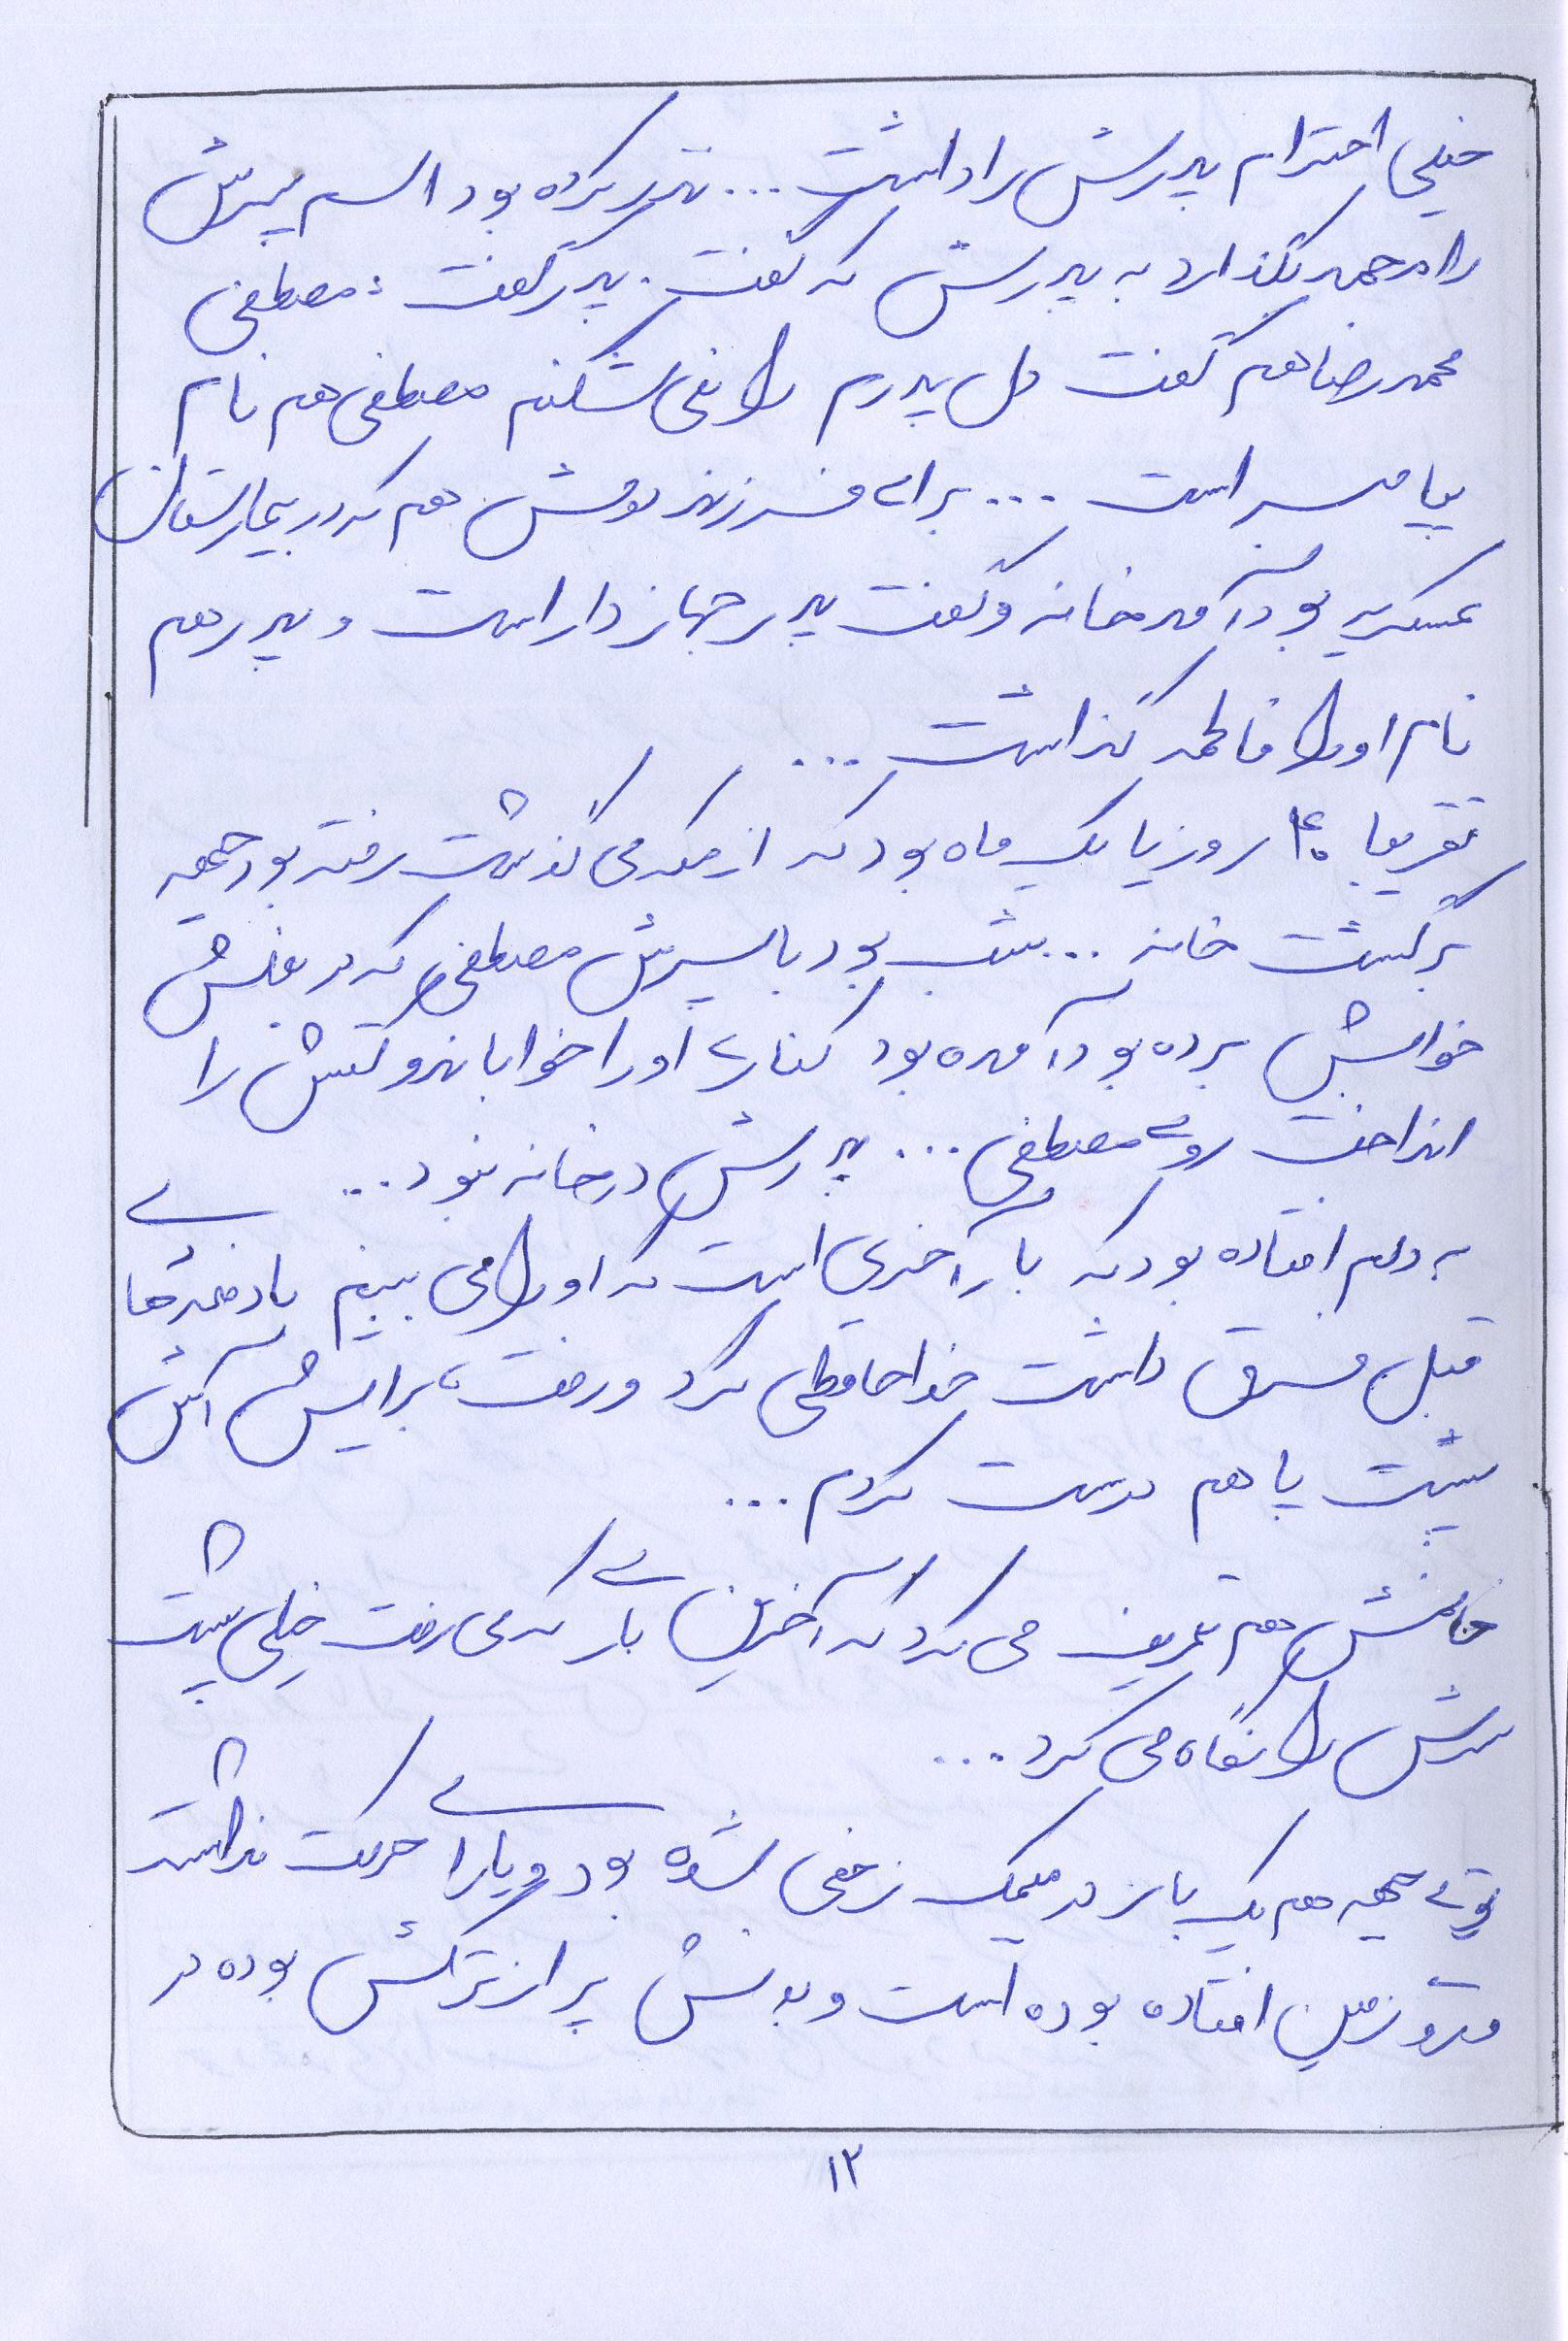 خیلی احترام پدرش را داشت ... نذر کرده بود اسم پسرش
را محمد بگذارد به پدرش که گفت . پدر گفت : مصطفی
محمدرضا هم گفت دل پدرم را نمی شکنم مصطفی هم نام
پیامبر است ... برای فرزند دومش هم که در بیمارستان
عسکریه بود آمد خانه و گفت پدر جهازدار است و پدر هم
نام او را فاطمه گذاشت ...
تقریبا ۴۰ روز یا یک ماه بود که از مکه می گذشت رفته بود جبهه
برگشت خانه ... شب بود با پسرش مصطفی که در بغلش
خوابش برده بود آمده بود کناری او را خواباند و کتش را
انداخت روی مصطفی ... پدرش در خانه نبود ...
به دلم افتاده بود که بار آخری است که او را می بینم با دفعه های
قبل فرق داشت خداحافظی کرد و رفت، برایش آش
پشت پا هم درست کردم ...
خانمش هم تعریف می کرد که آخرین باری که می رفت خیلی پشت
سرش را نگاه می کرد ...
توی جبهه هم یک بار در میمک زخمی شده بود و یارای حرکت نداشت
و رو زمین افتاده بوده است و بدنش پر از ترکش بوده در
۱۲